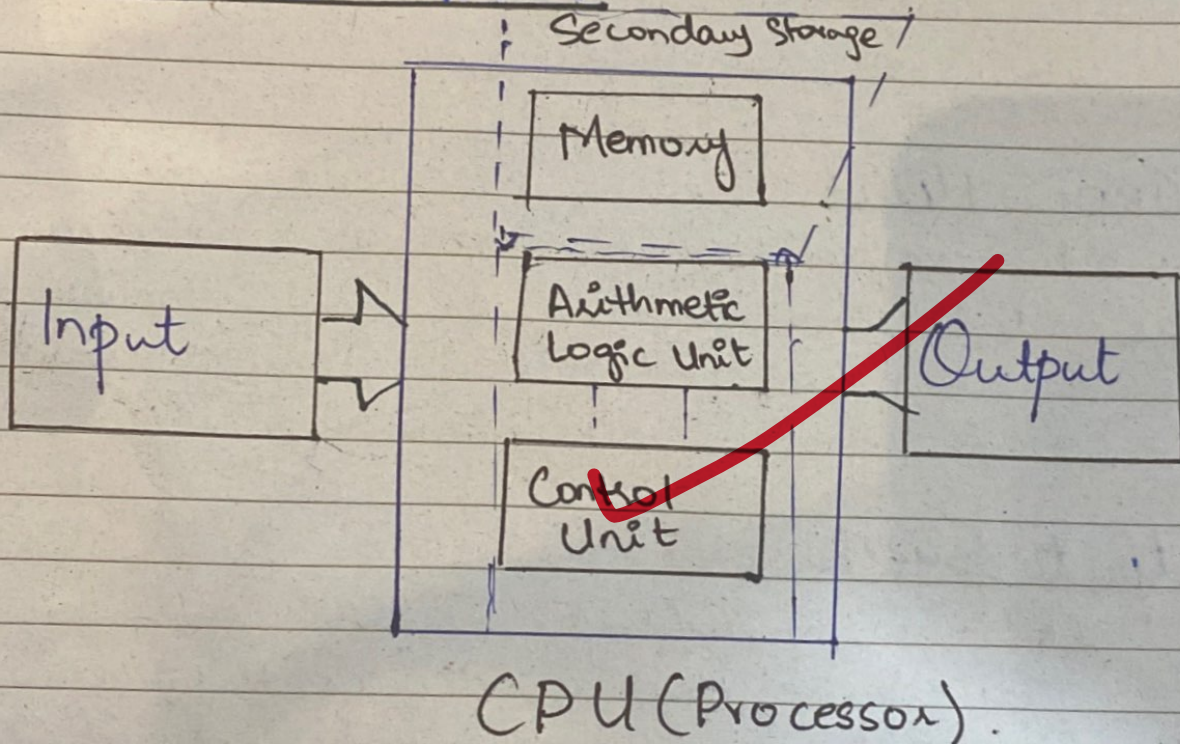 Secondary Storage
Memory
Input
Arithmetic
Logic Unit
Output
Control
Unit
CPU (Processor).